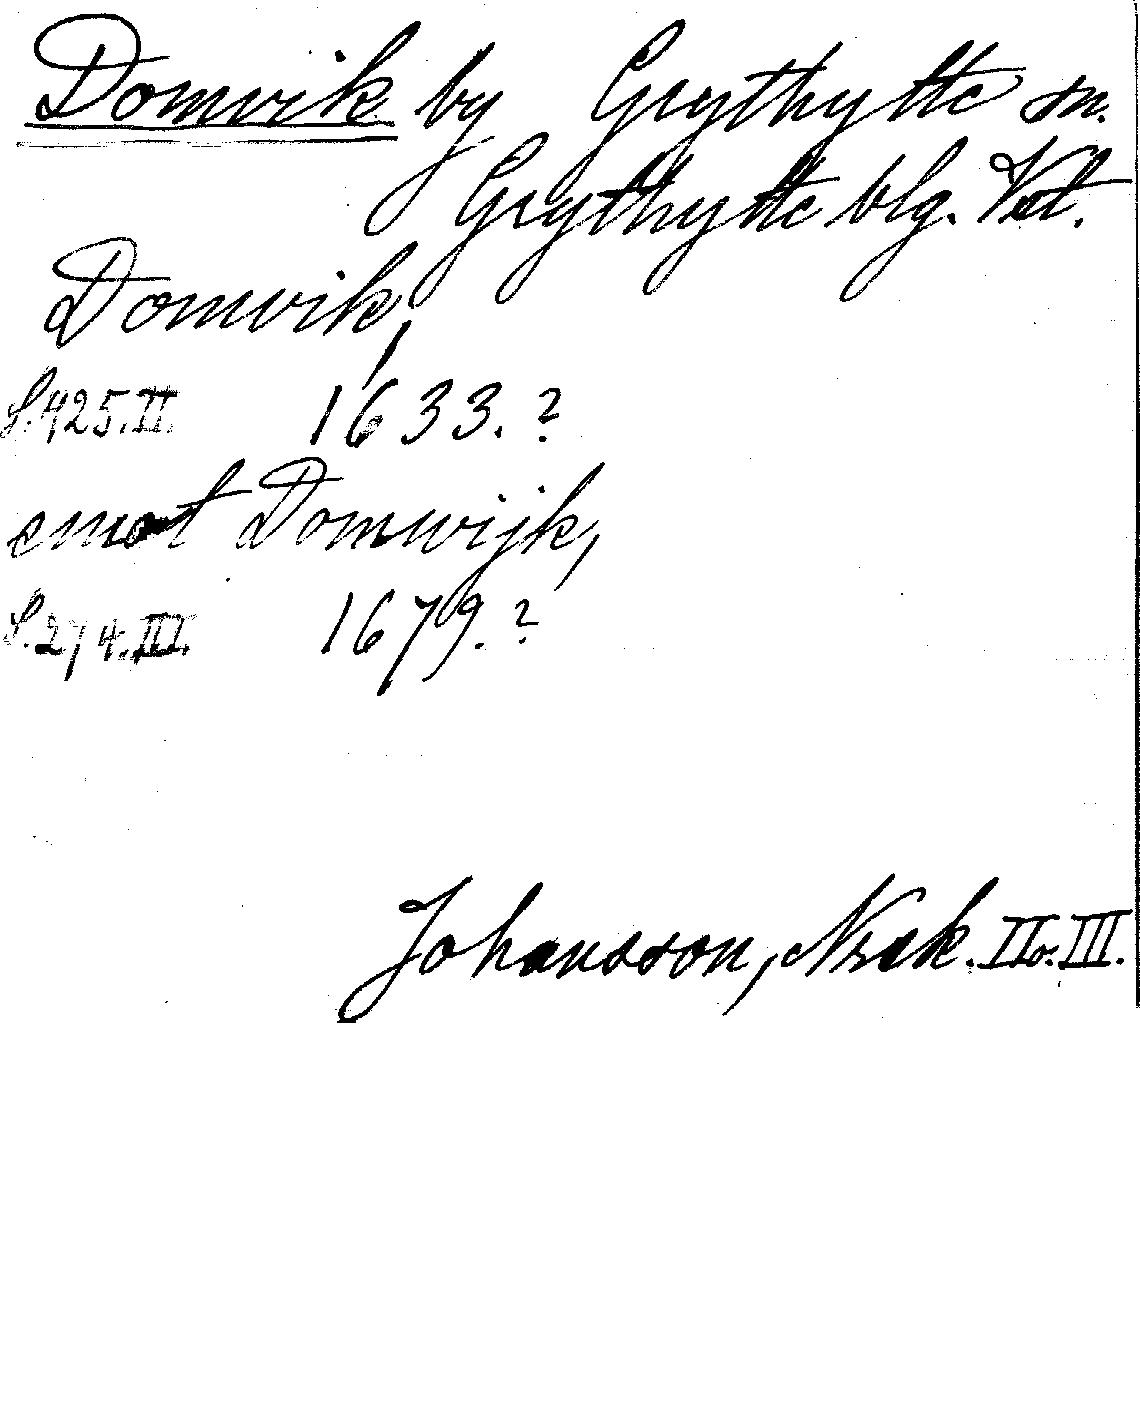 Domvik by Grythytte sn.
Grythytte blg. Vstl.
Domvik,
S.425.II. 1633.?
emot Domwijk,
S.274.III. 1679.?
Johansson, Nrsk. II o. III.